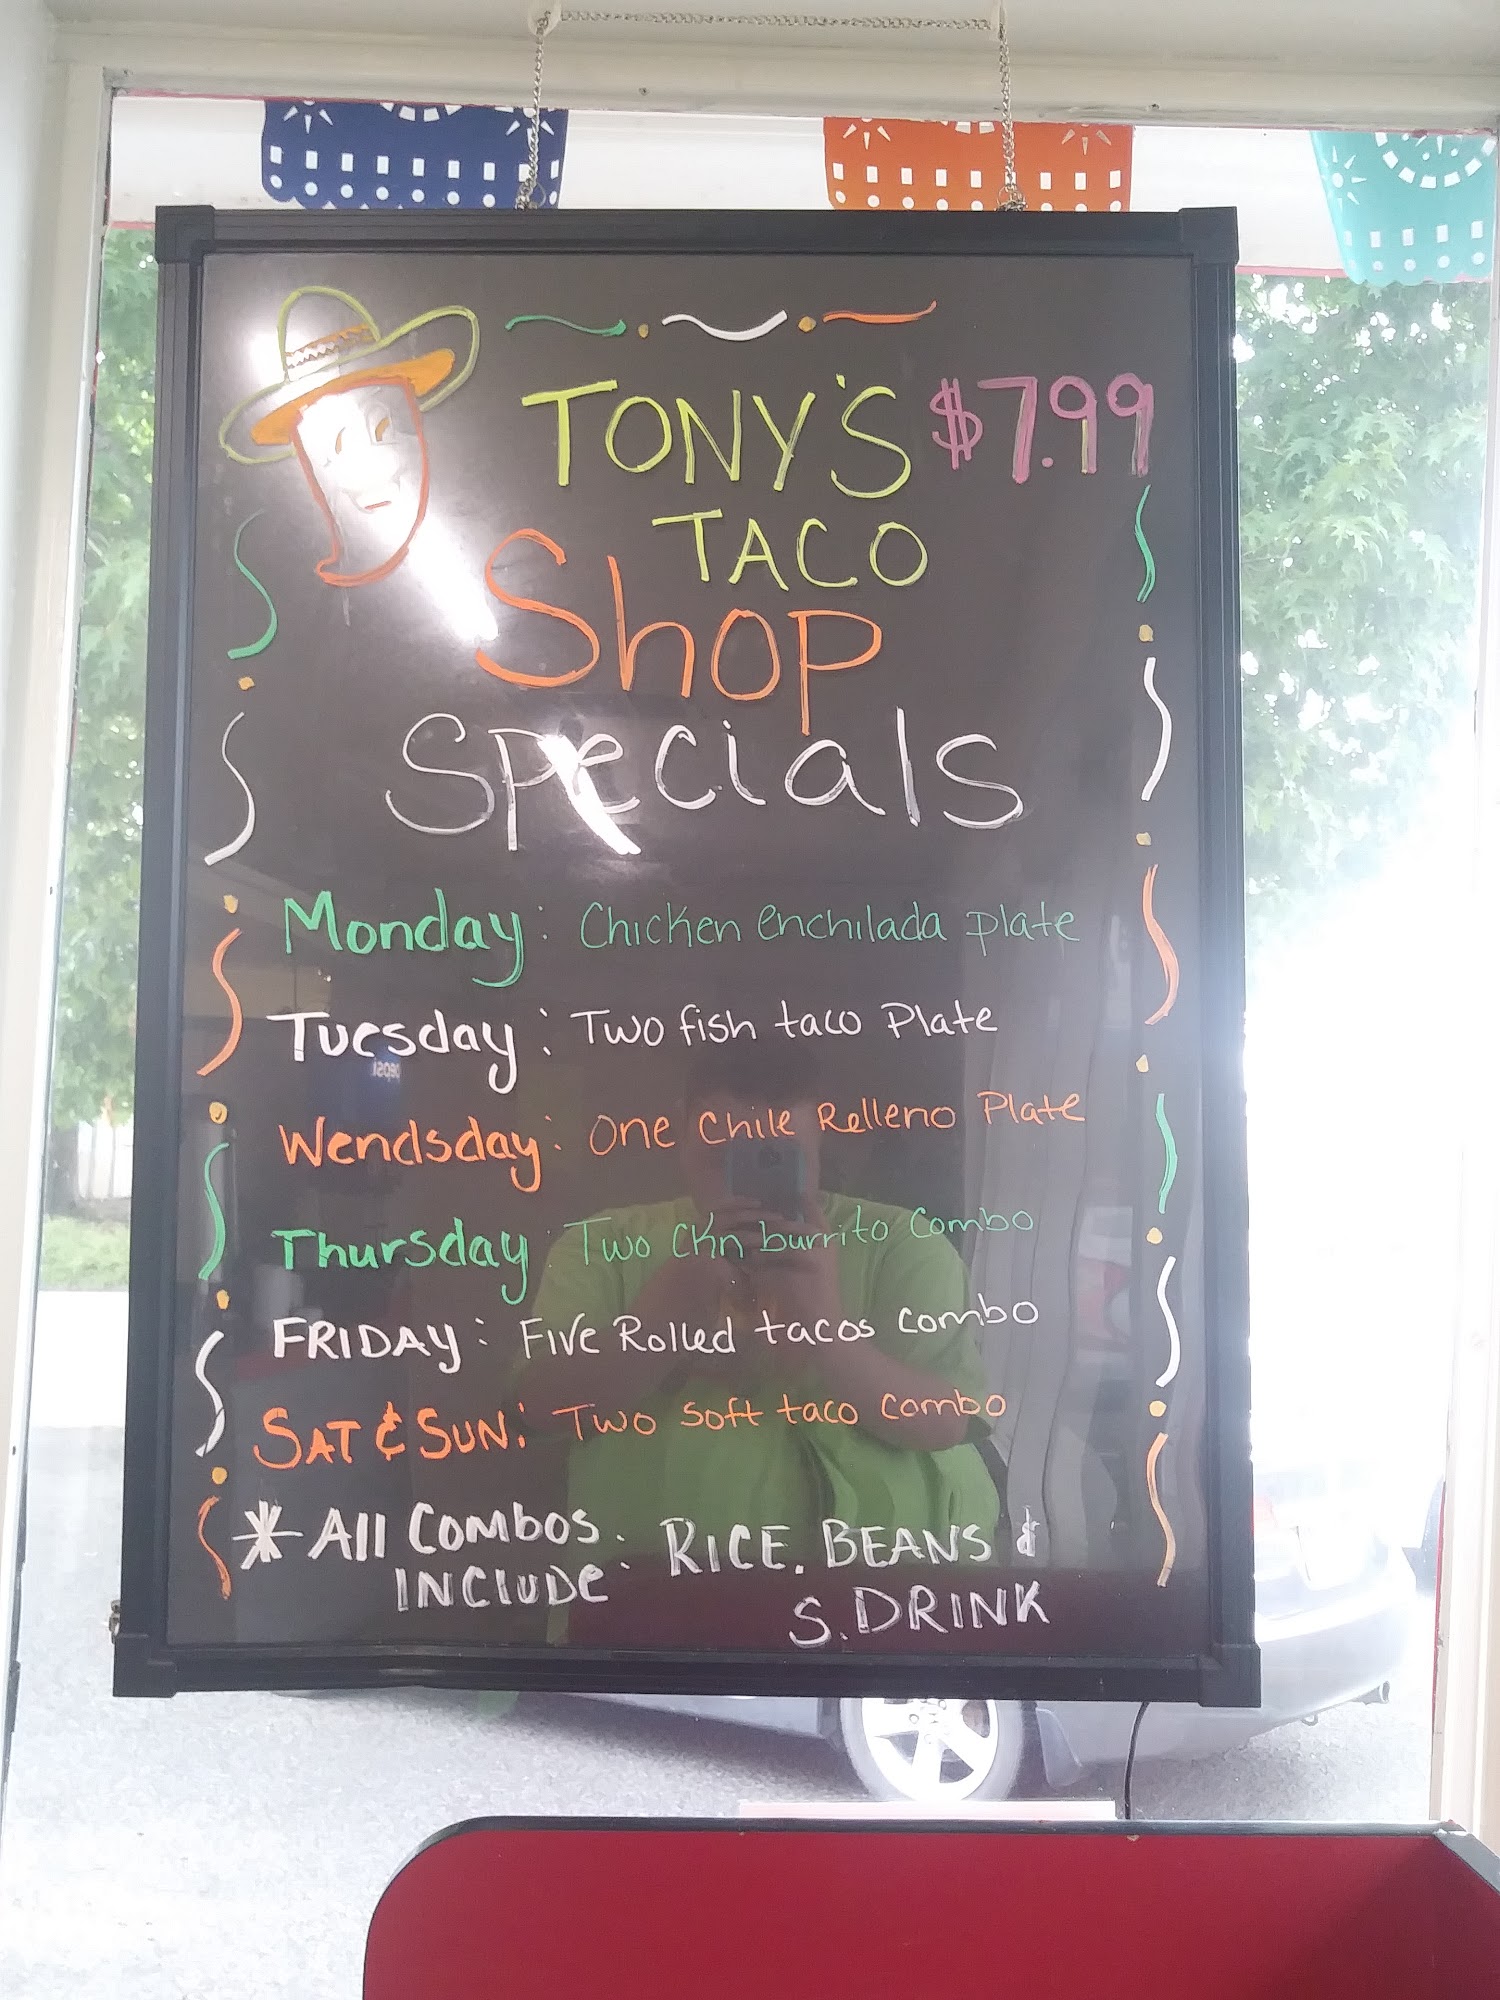 TONY'S $7.99
TACO
Shop
Specials
Monday: Chicken enchilada plate
Tuesday: Two fish taco Plate
Wendsday: One Chile Relleno Plate
Thursday: Two CKn burrito Combo
FRIDAY: Five Rolled tacos combo
SAT & SUN: Two soft taco combo
* All Combos: RICE. BEANS &
INCLUDE S. DRINK